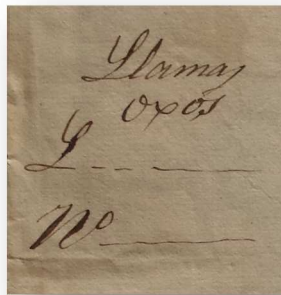 Llamas
oxos
L - - — —
Nº — — —